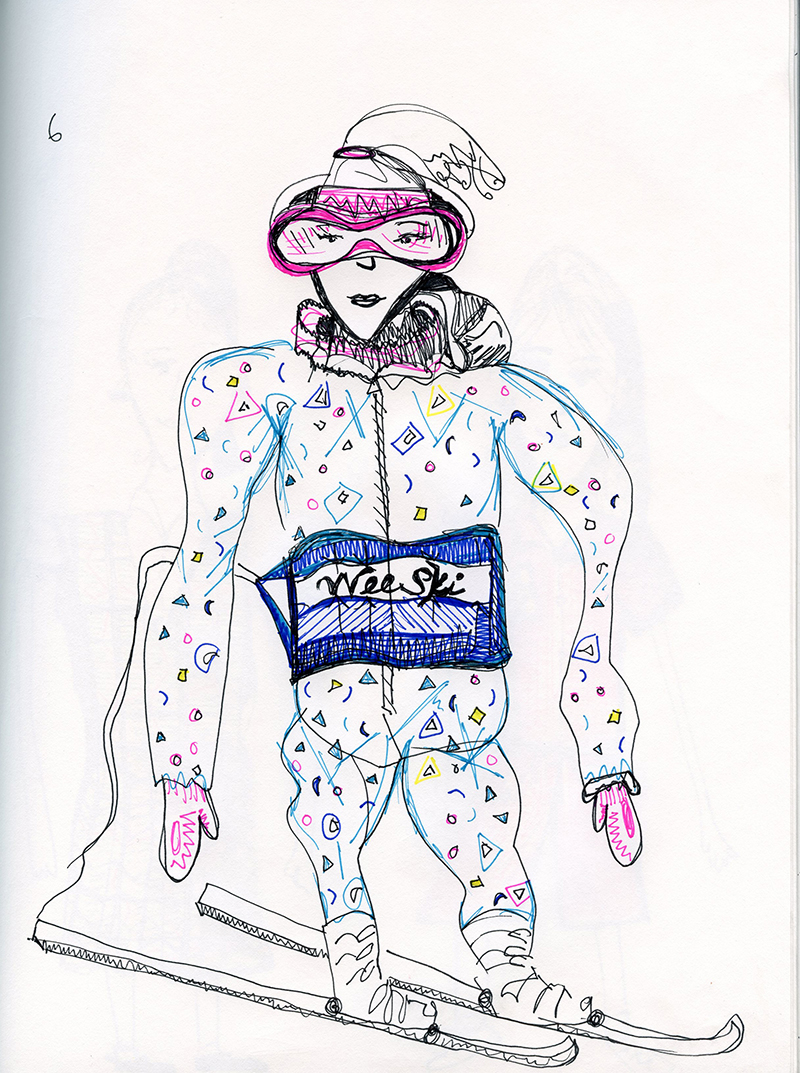 6
Wee Ski